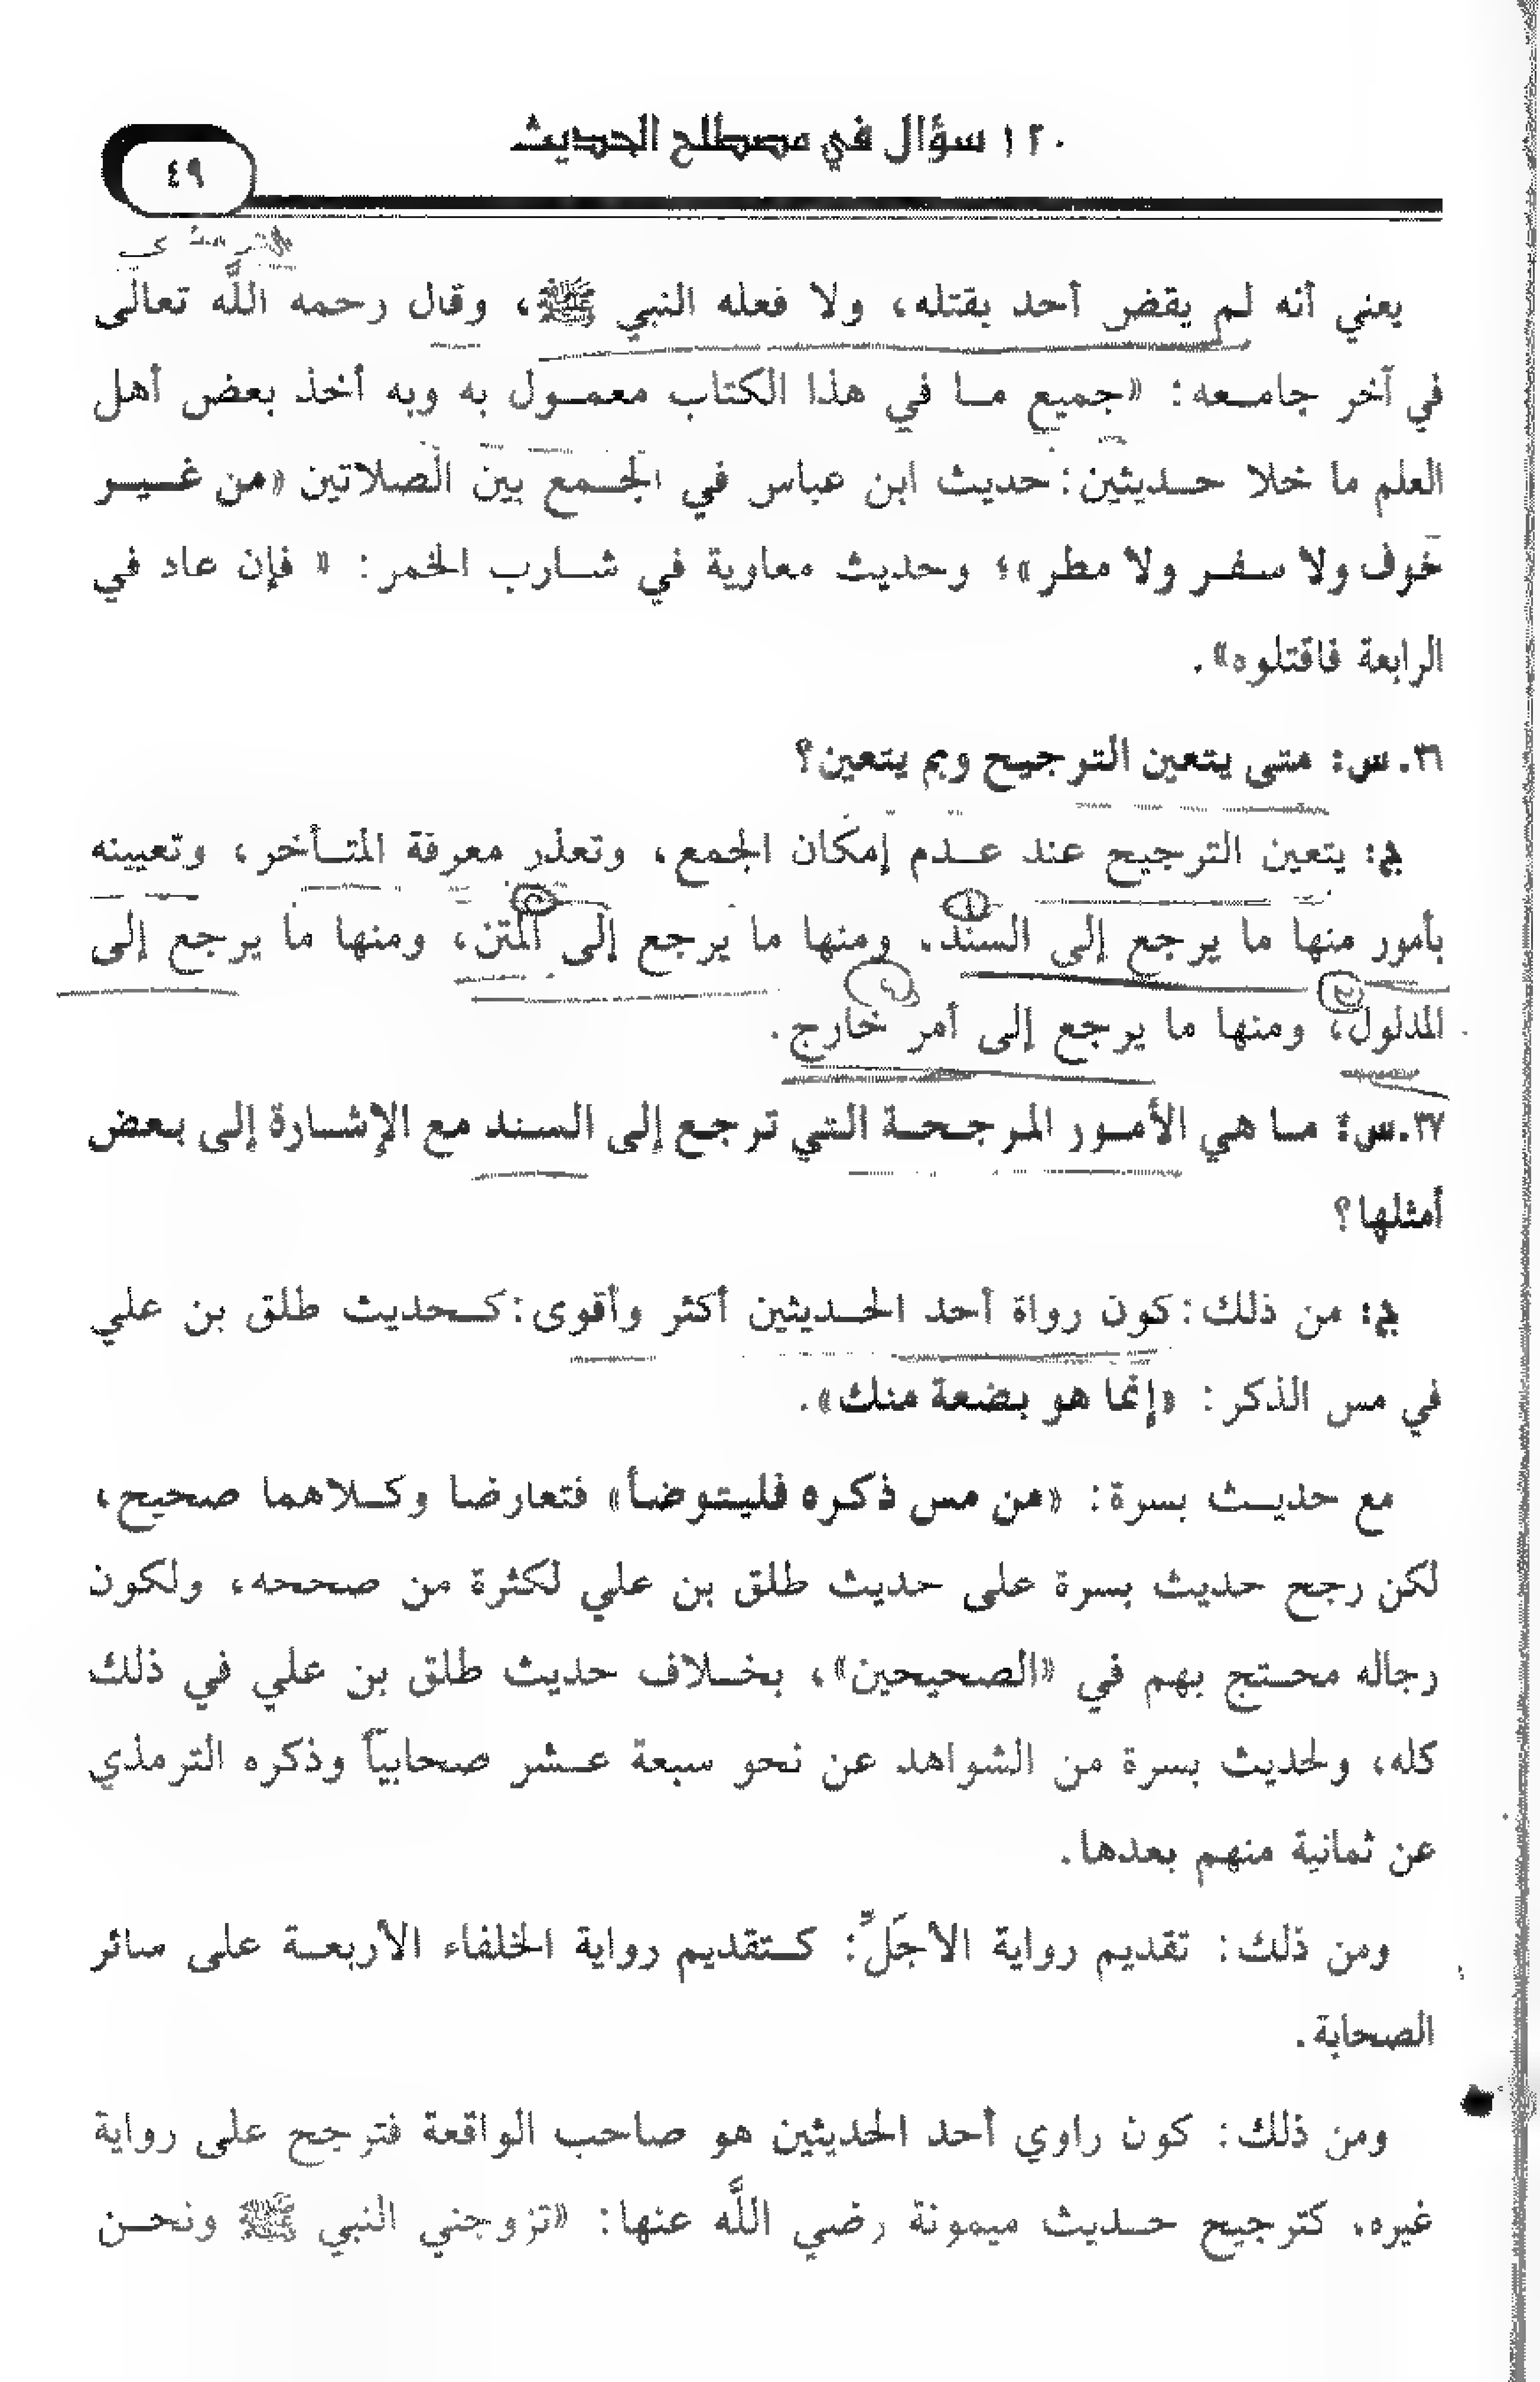 ١٢٠ سؤال في مصطلح الحديث
٤٩
يعني أنه لم يقض أحد بقتله، ولا فعله النبي ﷺ، وقال رحمه اللَّه تعالى
في آخر جامعه: «جميع ما في هذا الكتاب معمول به وبه أخذ بعض أهل
العلم ما خلا حديثين: حديث ابن عباس في الجمع بين الصلاتين «من غير
خوف ولا سفر ولا مطر»؛ وحديث معاوية في شارب الخمر: « فإن عاد في
الرابعة فاقتلوه».
٣٦.س: متى يتعين الترجيح وبم يتعين؟
ج: يتعين الترجيح عند عدم إمكان الجمع، وتعذر معرفة المتأخر، وتعيينه
بأمور منها ما يرجع إلى السند. ومنها ما يرجع إلى المتن، ومنها ما يرجع إلى
المدلول، ومنها ما يرجع إلى أمر خارج.
٣٧.س: ما هي الأمور المرجحة التي ترجع إلى السند مع الإشارة إلى بعض
أمثلها؟
ج: من ذلك: كون رواة أحد الحديثين أكثر وأقوى: كحديث طلق بن علي
في مس الذكر: «إنما هو بضعة منك».
مع حديث بسرة: «من مس ذكره فليتوضأ» فتعارضا وكلاهما صحيح،
لكن رجح حديث بسرة على حديث طلق بن علي لكثرة من صححه، ولكون
رجاله محتج بهم في «الصحيحين»، بخلاف حديث طلق بن علي في ذلك
كله، ولحديث بسرة من الشواهد عن نحو سبعة عشر صحابياً وذكره الترمذي
عن ثمانية منهم بعدها.
ومن ذلك: تقديم رواية الأجَلِّ: كتقديم رواية الخلفاء الأربعة على سائر
الصحابة.
ومن ذلك: كون راوي أحد الحديثين هو صاحب الواقعة فترجح على رواية
غيره. كترجيح حديث ميمونة رضي اللَّه عنها: «تزوجني النبي ﷺ ونحن